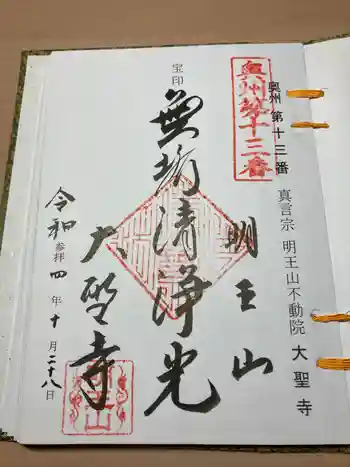 奥州 第十三番
真言宗 明王山不動院 大聖寺
奥州第十三番
明王山
宝印
無垢清浄光
大聖寺
令和 四年十月二十八日
参拝